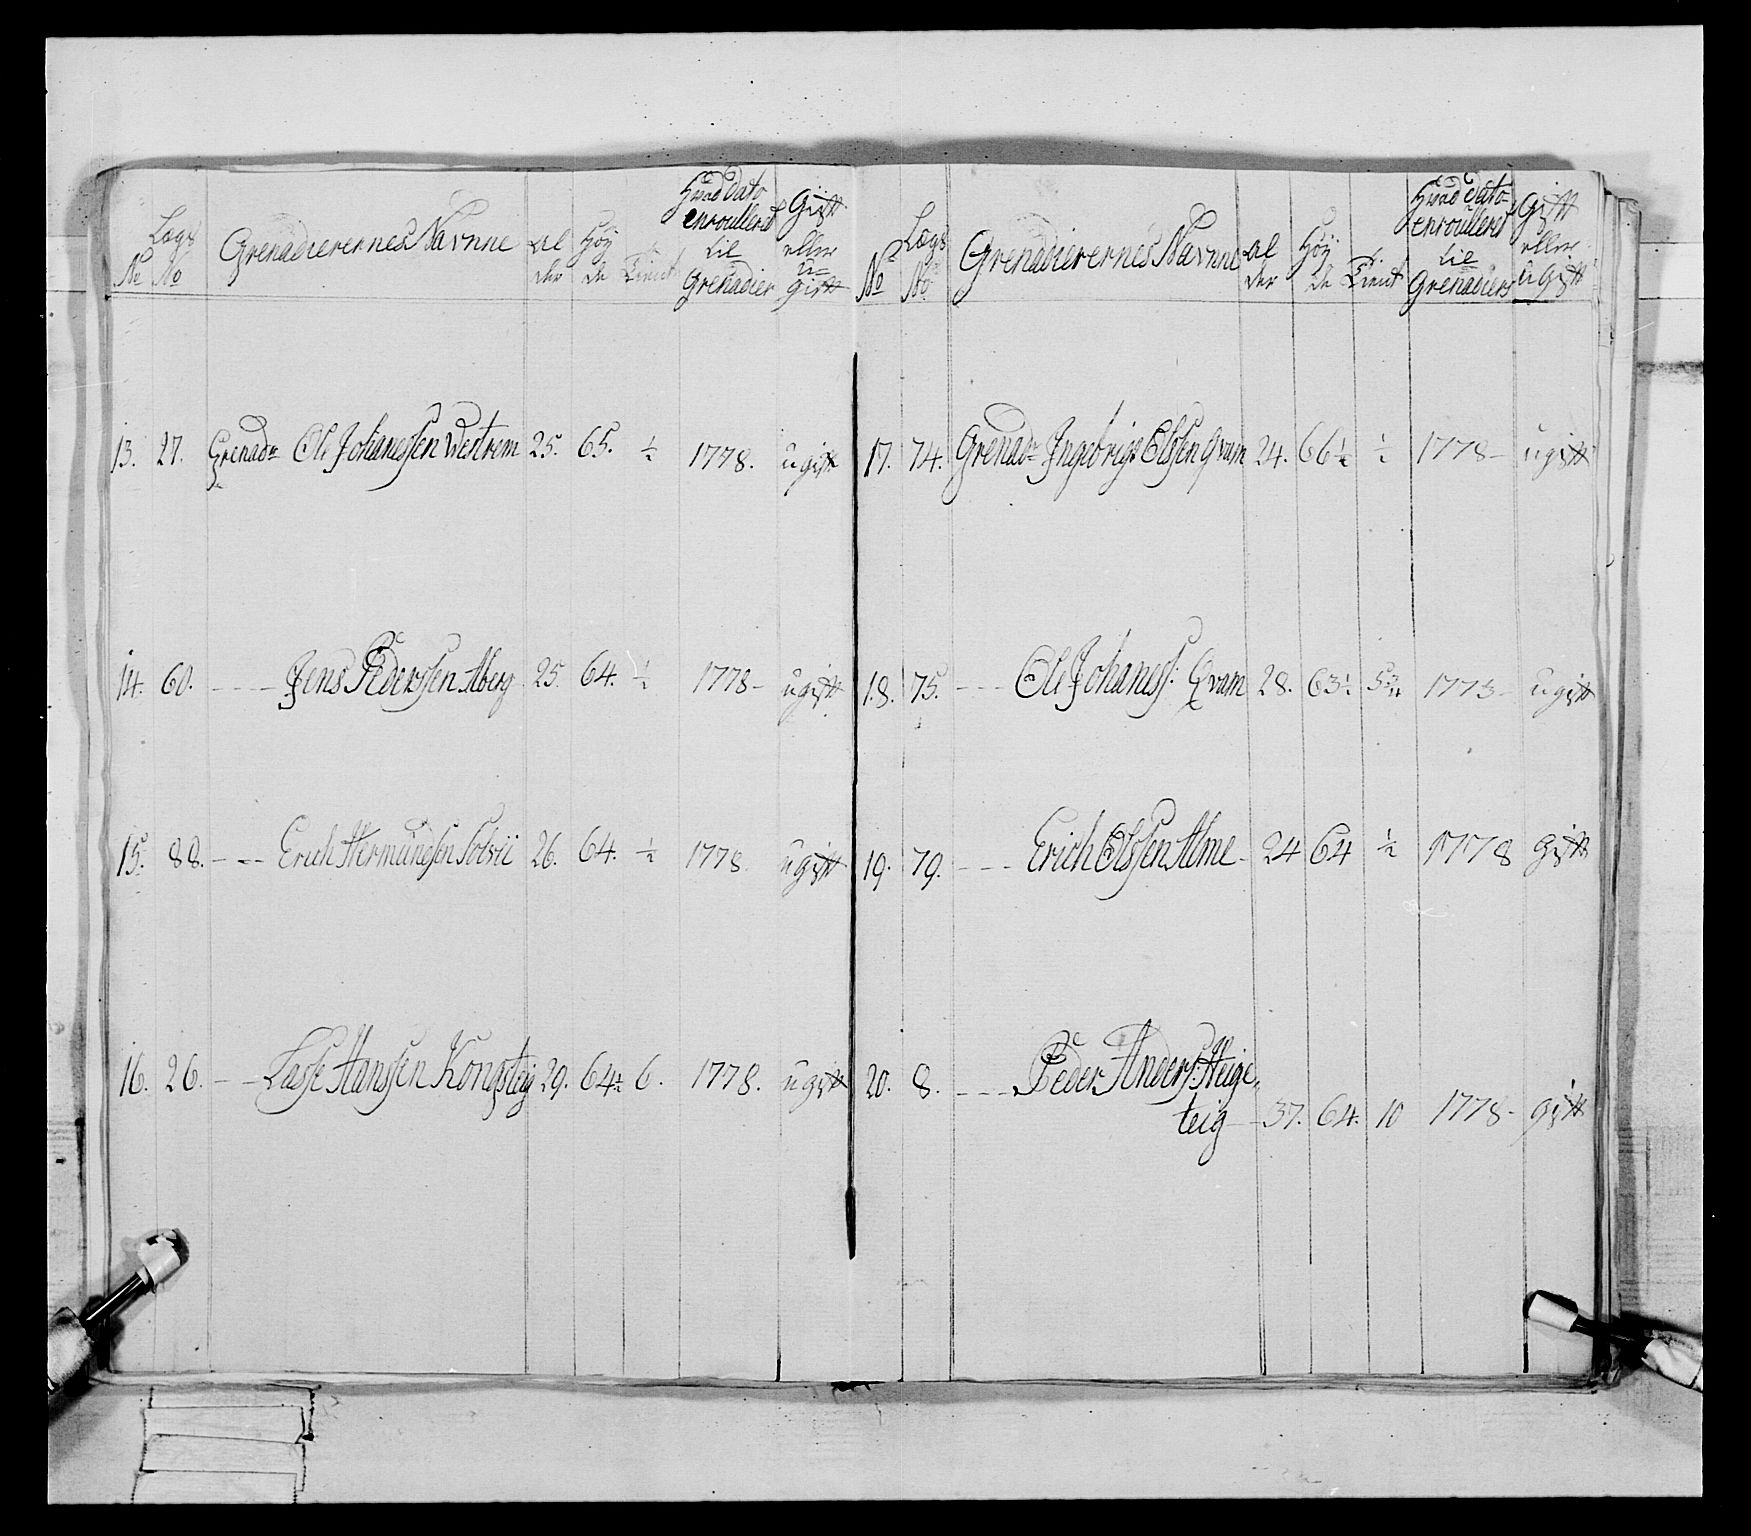 No Lægs No Grenadierernes Navnne Alder Höyde Tient Hvad dato enroullerd til Grenadier Gift eller ugift
13. 27. Grenadr Ole Johanessen Westrem 25. 65. ½ 1778. ugift
14. 60. - - - Jens Pederssen Aberg 25. 64. ½ 1778 - ugift
15. 88. - - - Erich Hermundsen 26. 64. ½ 1778. ugift
16. 26. - - Lasse Hanssen Kongsteig 29. 64½ 6. 1778. ugift
No Lægs No Grenadierernes Navnne Alder Höyde Tient Hvad dato enroullerd til Grenadiers Gift eller ugift
17. 74. Grenadr Ingebrigt Olssen Qvam 24. 66½ ½ 1778 - ugift
18. 75. - - - Ole Johaness: Qvam 28. 63½ 1773 - ugift
19. 79. - - - Erich Olssen Alme - 24 64 ½ 1778 gift
20. 8. - - - Peder Anders: Heige-
teig - 37. 64. 10 1778 - gift